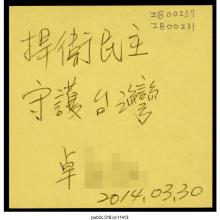 IB00237
IB00231
捍衛民主
守護台灣
卓
2014.03.30
public.318.io/11413